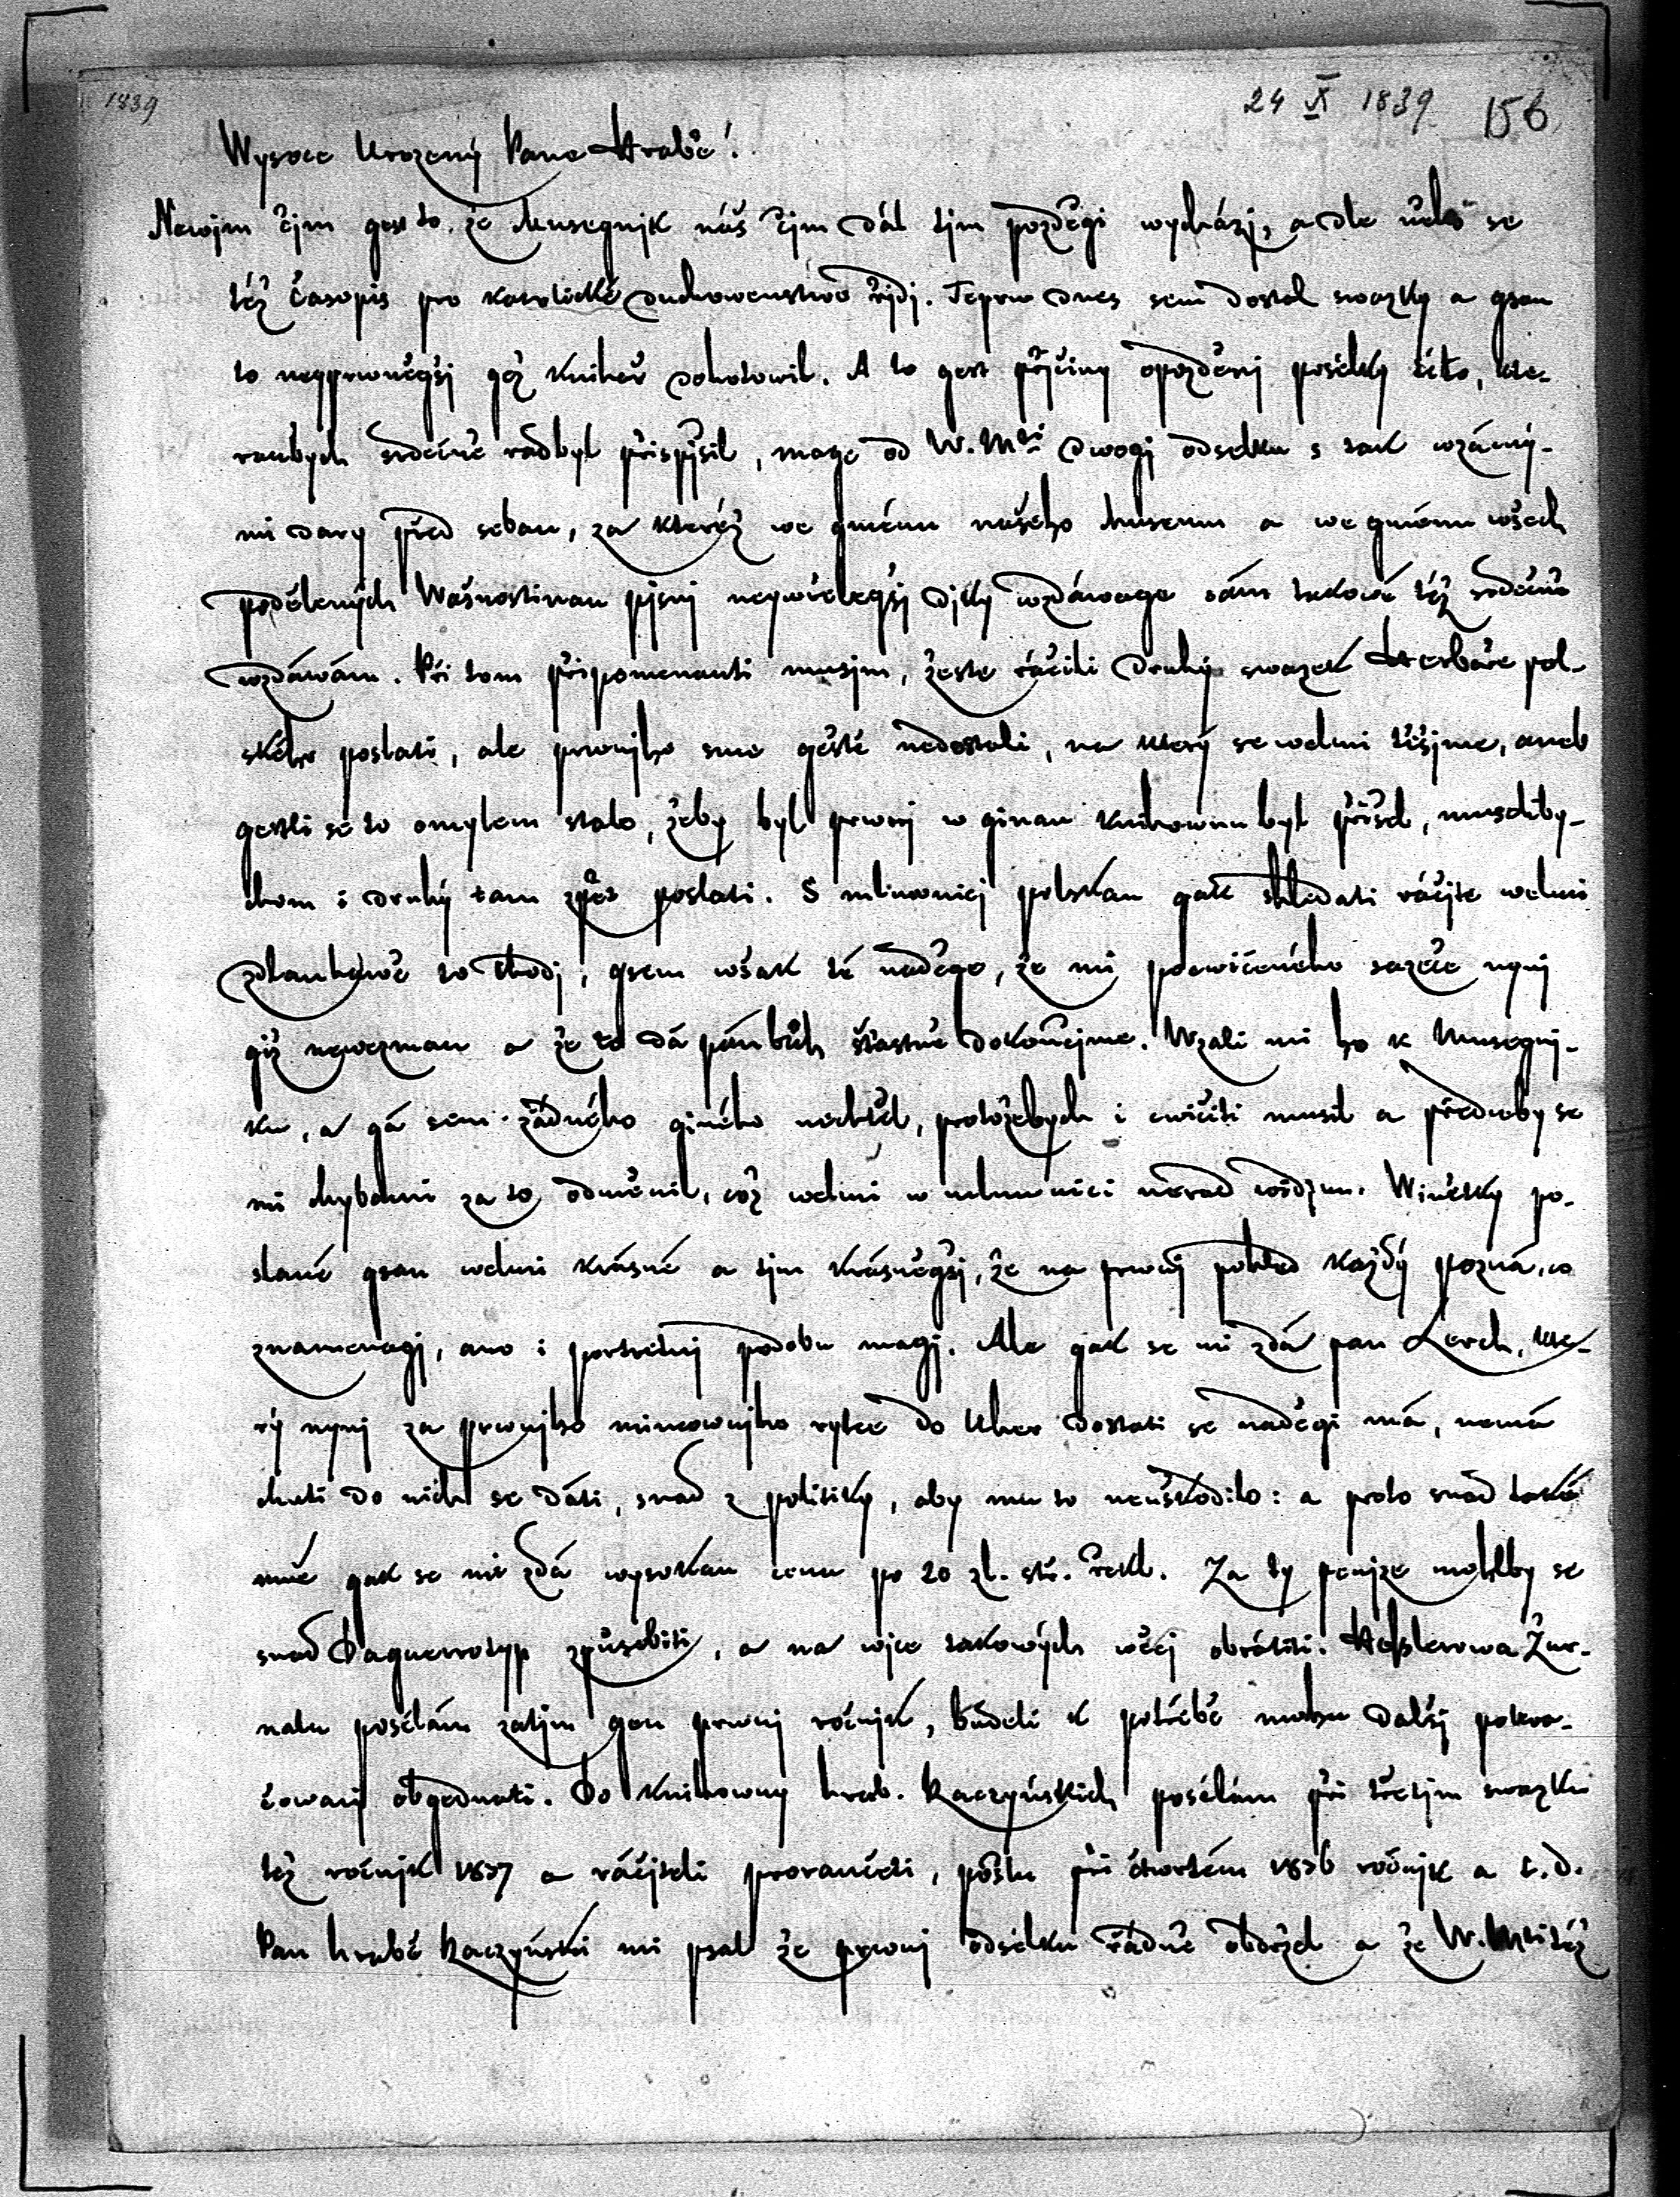 1839
24 X 1839 156
Wysoce Urozený Pane Hrabě!
Newjm čjm gest to, že Musegnjk náš čjm dál tjm pozděgi wycházj, a dle něho se
též časopis pro katolické duchowenstwo řjdj. Teprw dnes sem dostal swazky a gsau
to neyprwněgšj gež knihař dohotowil. A to gest přjčiny opozděnj posélky této, kte-
raubych srdečně rád byl přispjšil, mage od W. Msti dwogj odselku s tak wzácný-
mi dary před sebau, za kteréž we gménu našeho Museum a we gménu wšech
podělených Wašnostinau pjsnj neywřelegšj djky wzdáwage sám takowé též srdečně
wzdáwám. Při tom připomenauti musjm, žeste ráčili druhý swazek Herbáře pol-
ského poslati, ale prwnjho sme geště nedostali, na který se welmi těšjme, aneb
gestli se to omylem stalo, žeby byl prwnj w ginau knihownu byl přišel, museliby-
chom i druhý tam zpět poslati. S mluwnicj polskau gak shledati ráčjte welmi
zdlauhawě to chodj, gsem wšak té naděge, že mi pocwičeného sazeče nynj
giž newezmau a že to dá pán bůh šťastně dokončjme. Wzali mi ho k Musegnj-
ku, a gá sem žádného giného nechtěl, protožebych i cwičiti musil a předceby se
mi chybami za to odměnil, což welmi w mluwnici nerad widjm. Winětky po-
slané gsau welmi krásné a tjm krásněgšj, že na prwnj pohled každý pozná, co
znamenagj, ano i portretnj podobu magj. Ale gak se mi zdá pan Lerch, kte-
rý nynj za prwnjho mincownjho rytce do Uher dostati se naděgi má, nemá
chuti do nich se dáti, snad z politiky, aby mu to neuškodilo: a proto snad také
mně gak se mi zdá wysokau cenu po 20 zl. stř. řekl. Za ty penjze mohlby se
snad Daguerrotyp způsobiti, a na wjce takowých wěcj obrátiti. Hesslerowa Žur-
nalu posélám zatjm gen prwnj ročnjk, budeli k potřebě mohu dalšj pokra-
čowanj obgednati. Do knihowny hrab. Raczyńskich posélám při třetjm swazku
též ročnjk 1837 a ráčjteli poraučeti, pošlu při čtwrtém 1836 ročnjk a t. d.
Pan hrabě Raczyński mi psal že prwnj odsélku řádně obdržel a že W. Mti též